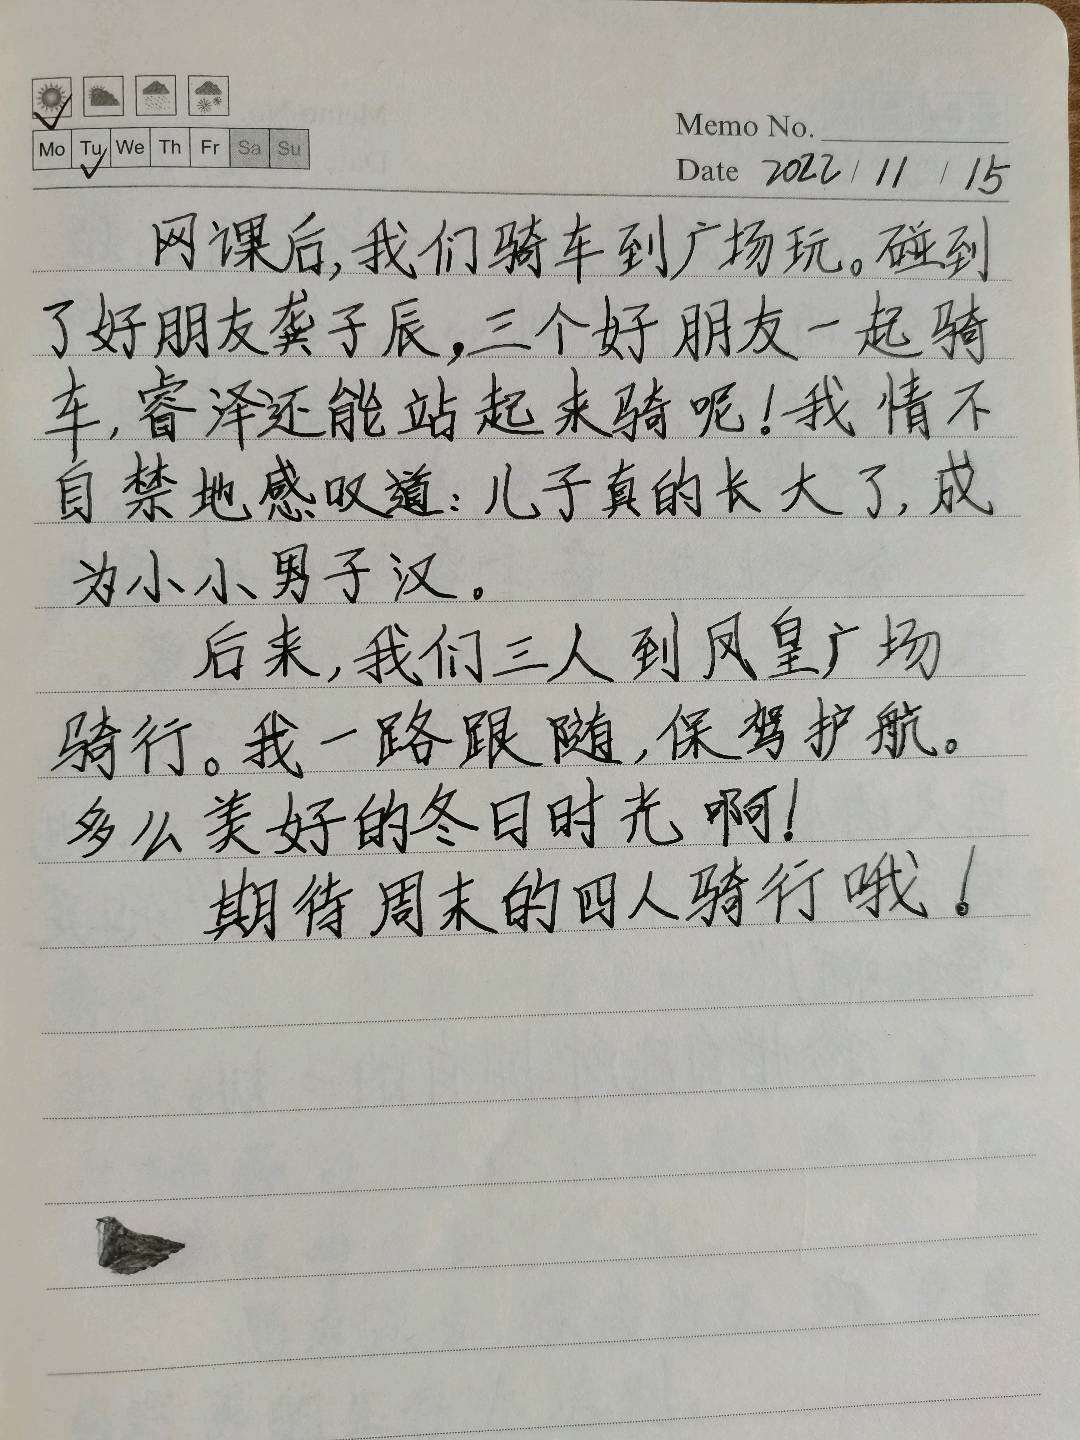 Memo No.
Mo Tu We Th Fr Sa Su
Date 2022 / 11 / 15
网课后,我们骑车到广场玩。碰到
了好朋友龚子辰,三个好朋友一起骑
车,睿泽还能站起来骑呢!我情不
自禁地感叹道:儿子真的长大了,成
为小小男子汉。
后来,我们三人到凤皇广场
骑行。我一路跟随,保驾护航。
多么美好的冬日时光啊!
期待周末的四人骑行哦!